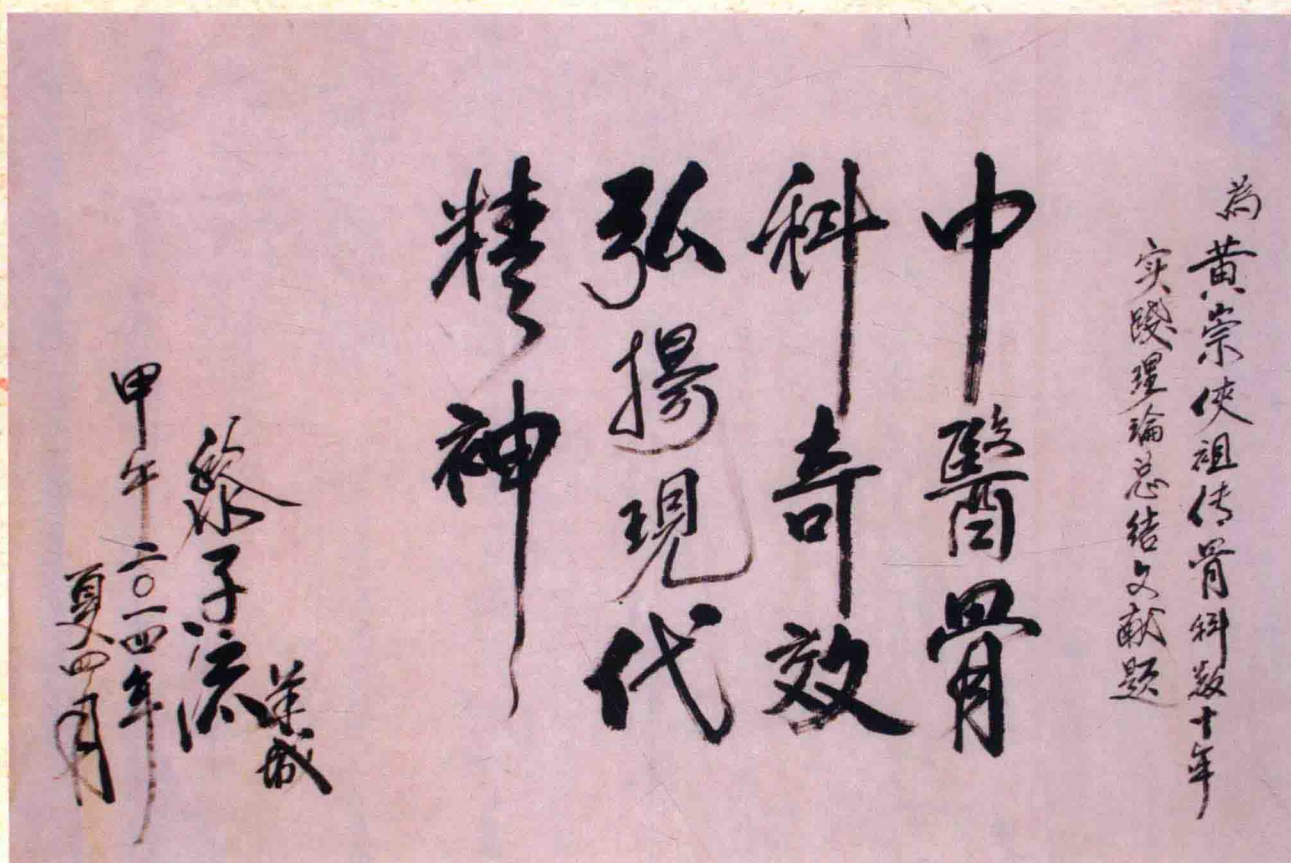 為黄崇俠祖传骨科数十年
实踐理論总结文献题
中醫骨
科奇效
弘揚現代
精神
羊城
黎子流
甲午二〇一四年
夏四月